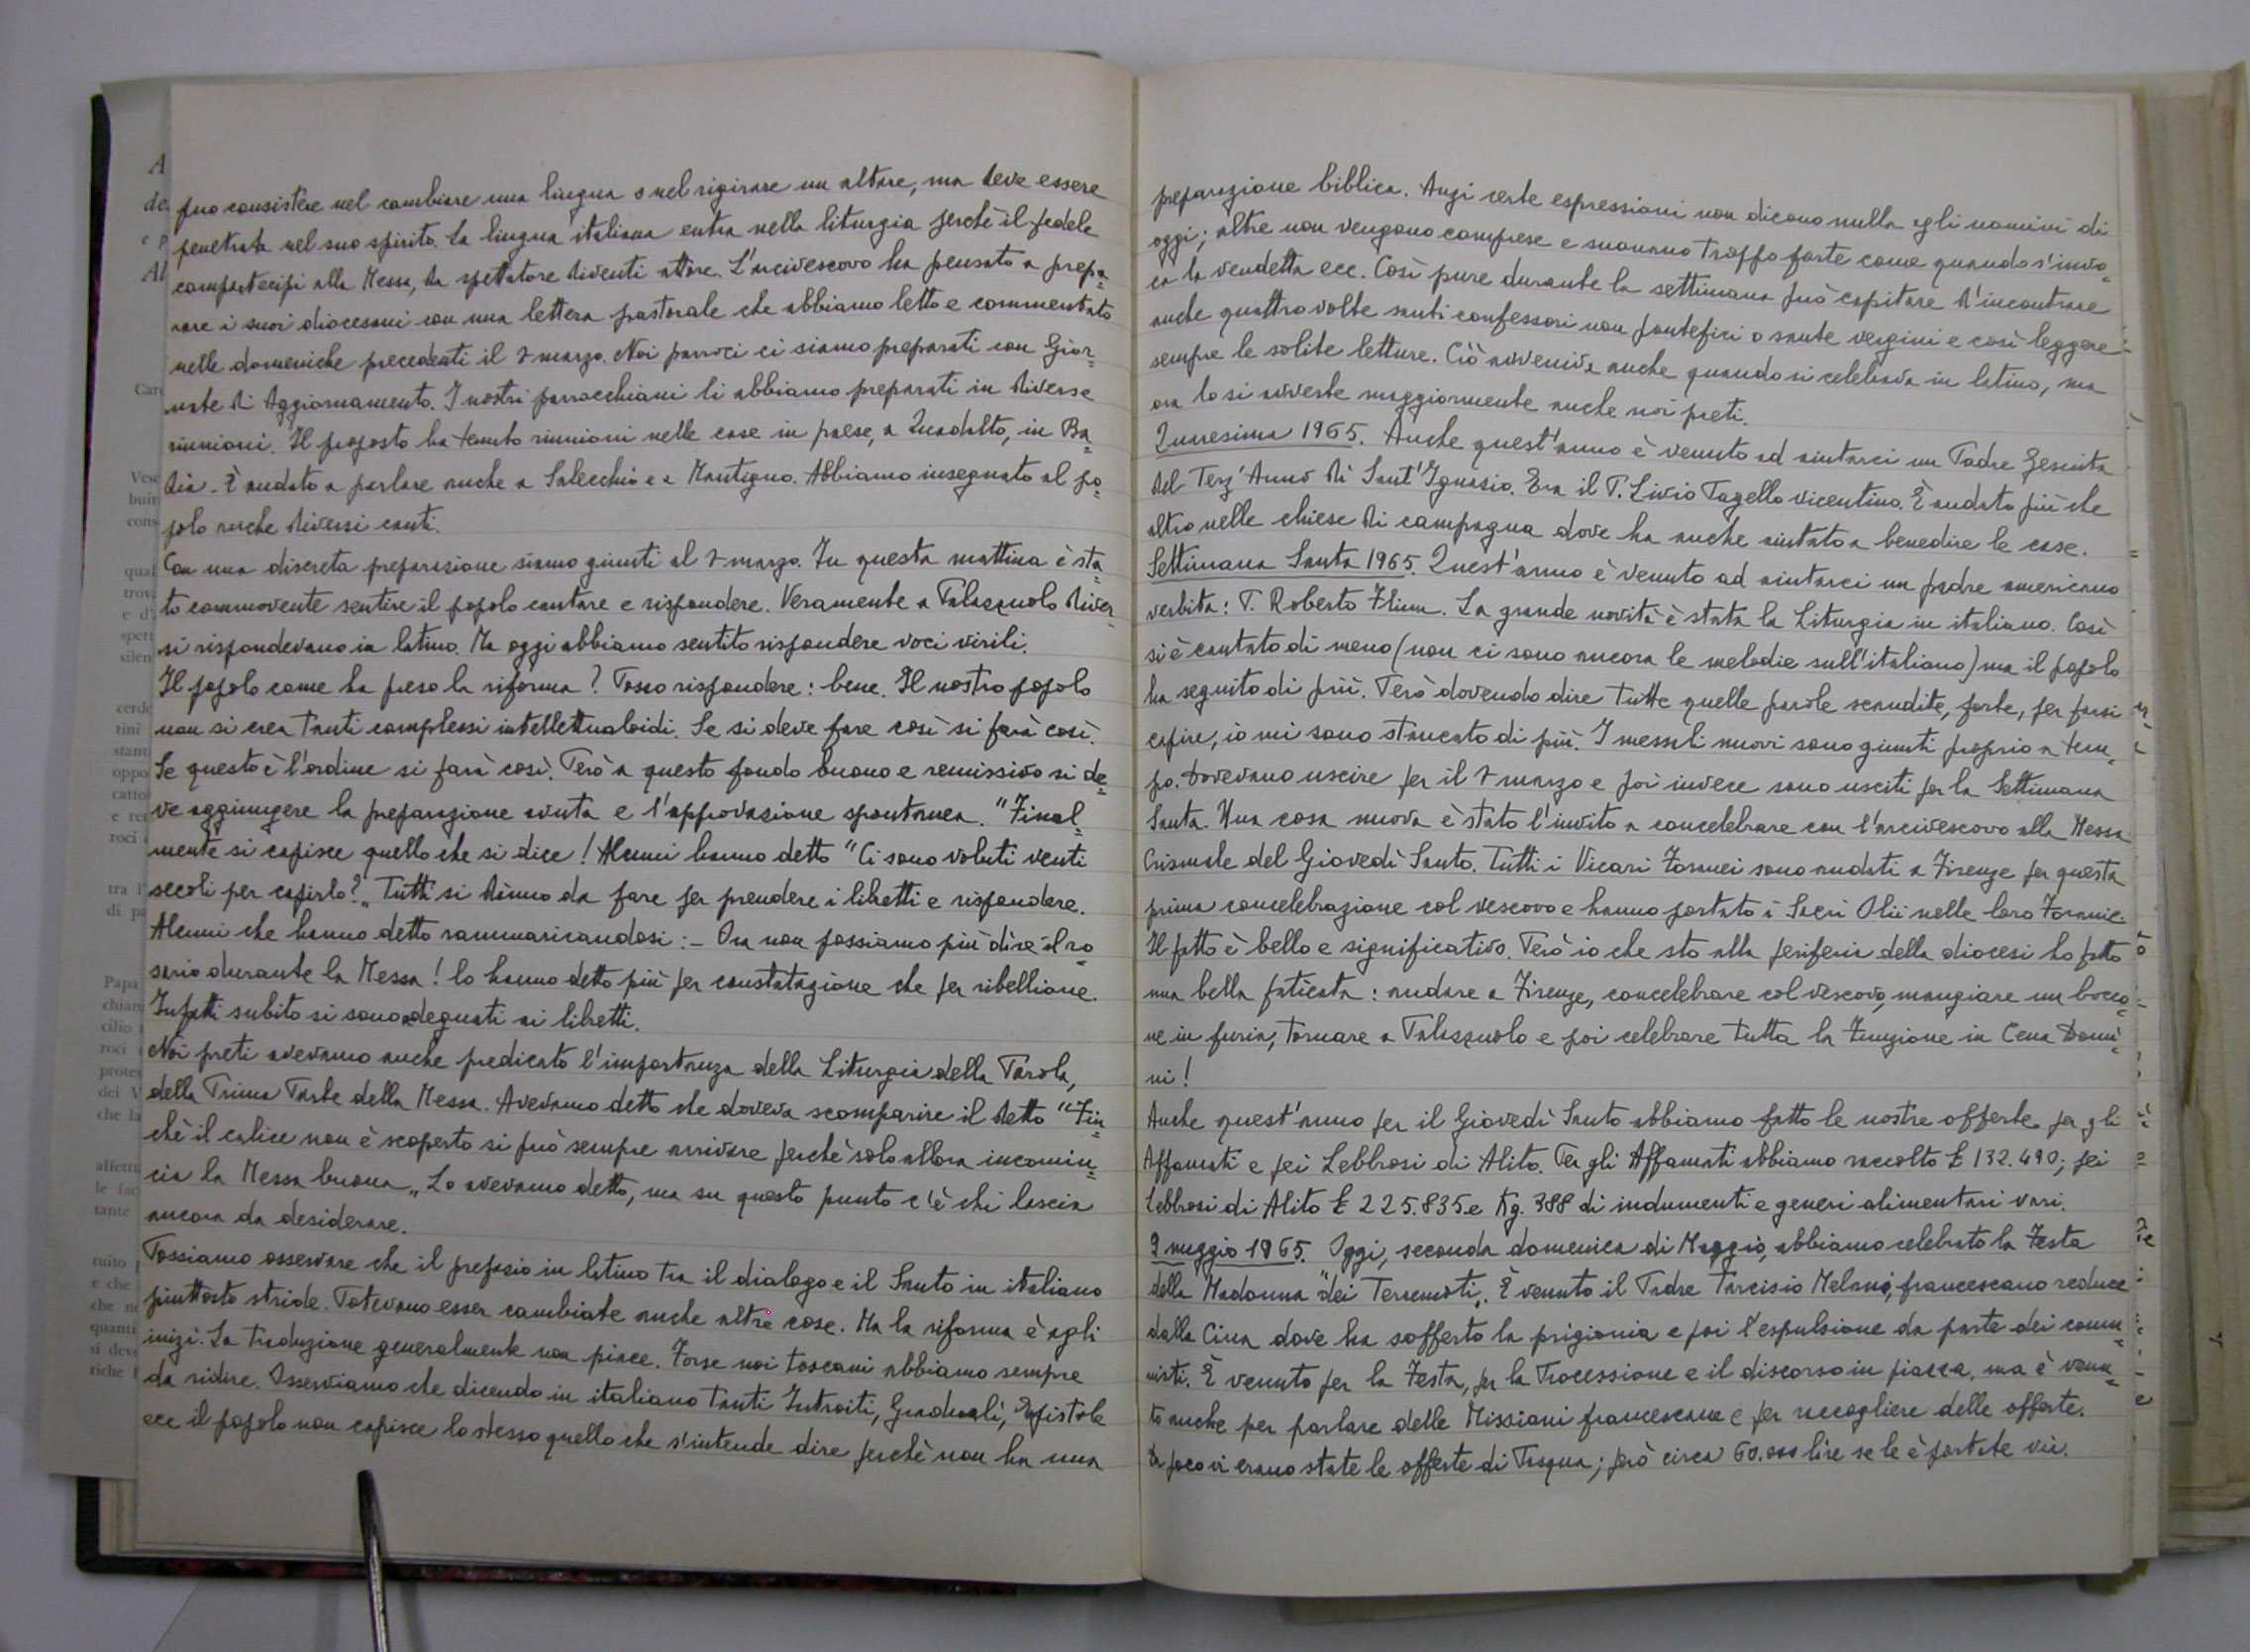 può consistere nel cambiare una lingua o nel rigirare un altare, ma deve essere
penetrata nel suo spirito. La lingua italiana entra nella liturgia perchè il fedele
compartecipi alla Messa, da spettatore diventi attore. L'arcivescovo ha pensato a prepa=
rare i suoi diocesani con una lettera pastorale che abbiamo letto e commentato
nelle domeniche precedenti il 7 marzo. Noi parroci ci siamo preparati con Gior=
nate di Aggiornamento. I nostri parrocchiani li abbiamo preparati in diverse
riunioni. Il proposto ha tenuto riunioni nelle case in paese, a Quadalto, in Ba=
dia. È andato a parlare anche a Salecchio e a Mantigno. Abbiamo insegnato al po=
polo anche diversi canti.
Con una discreta preparazione siamo giunti al 7 marzo. In questa mattina è sta=
to commovente sentire il popolo cantare e rispondere. Veramente a Palazzuolo diver=
si rispondevano in latino. Ma oggi abbiamo sentito rispondere voci virili.
Il popolo come ha preso la riforma? Posso rispondere: bene. Il nostro popolo
non si crea tanti complessi intellettualoidi. Se si deve fare così si farà così.
Se questo è l'ordine si farà così. Però a questo fondo buono e remissivo si de=
ve aggiungere la preparazione avuta e l'approvazione spontanea. "Final=
mente si capisce quello che si dice! Alcuni hanno detto "Ci sono voluti venti
secoli per capirlo?„ Tutti si dànno da fare per prendere i libretti e rispondere.
Alcuni che hanno detto rammaricandosi: - Ora non possiamo più dire il ro=
sario durante la Messa! lo hanno detto più per constatazione che per ribellione.
Infatti subito si sono adeguati ai libretti.
Noi preti avevamo anche predicato l'importanza della Liturgia della Parola,
della Prima Parte della Messa. Avevamo detto che doveva scomparire il detto "Fin=
chè il calice non è scoperto si può sempre arrivare perchè solo allora incomin=
cia la Messa buona„ Lo avevamo detto, ma su questo punto c'è chi lascia
ancora da desiderare.
Possiamo osservare che il prefazio in latino tra il dialogo e il Santo in italiano
piuttosto stride. Potevano esser cambiate anche altre cose. Ma la riforma è agli
inizi. La traduzione generalmente non piace. Forse noi toscani abbiamo sempre
da ridire. Osserviamo che dicendo in italiano tanti Introiti, Graduali, Epistole
ecc il popolo non capisce lo stesso quello che s'intende dire perchè non ha una
preparazione biblica. Anzi certe espressioni non dicono nulla agli uomini di
oggi; altre non vengono comprese e suonano troppo forte come quando s'invo=
ca la vendetta ecc. Così pure durante la settimana può capitare d'incontrare
anche quattro volte santi confessori non pontefici o sante vergini e così leggere
sempre le solite letture. Ciò avveniva anche quando si celebrava in latino, ma
ora lo si avverte maggiormente anche noi preti.
Quaresima 1965. Anche quest'anno è venuto ad aiutarci un Padre Gesuita
del Terz'Anno di Sant'Ignazio. Era il P. Livio Pagello vicentino. È andato più che
altro nelle chiese di campagna dove ha anche aiutato a benedire le case.
Settimana Santa 1965. Quest'anno è venuto ad aiutarci un padre americano
verbita: P. Roberto Flinn. La grande novità è stata la Liturgia in italiano. Così
si è cantato di meno (non ci sono ancora le melodie sull'italiano) ma il popolo
ha seguito di più. Però dovendo dire tutte quelle parole scandite, forte, per farsi
capire, io mi sono stancato di più. I messali nuovi sono giunti proprio a tem=
po. Dovevano uscire per il 7 marzo e poi invece sono usciti per la Settimana
Santa. Una cosa nuova è stato l'invito a concelebrare con l'arcivescovo alla Messa
Crismale del Giovedì Santo. Tutti i Vicari Foranei sono andati a Firenze per questa
prima concelebrazione col vescovo e hanno portato i Sacri Olii nelle loro Foranie.
Il fatto è bello e significativo. Però io che sto alla periferia della diocesi ho fatto
una bella faticata: andare a Firenze, concelebrare col vescovo, mangiare un bocco=
ne in furia, tornare a Palazzuolo e poi celebrare tutta la Funzione in Cena Domi=
ni!
Anche quest'anno per il Giovedì Santo abbiamo fatto le nostre offerte per gli
Affamati e pei Lebbrosi di Alito. Per gli Affamati abbiamo raccolto £ 132.490; pei
lebbrosi di Alito £ 225.835 e Kg. 388 di indumenti e generi alimentari vari.
9 maggio 1965. Oggi, seconda domenica di Maggio, abbiamo celebrato la Festa
della Madonna "dei Terremoti„. È venuto il Padre Tarcisio francescano reduce
dalla Cina dove ha sofferto la prigionia e poi l'espulsione da parte dei comu=
nisti. È venuto per la Festa, per la Processione e il discorso in piazza, ma è venu=
to anche per parlare delle Missioni francescane e per raccogliere delle offerte.
Da poco vi erano state le offerte di Pasqua; però circa 60.000 lire se le è portate via.